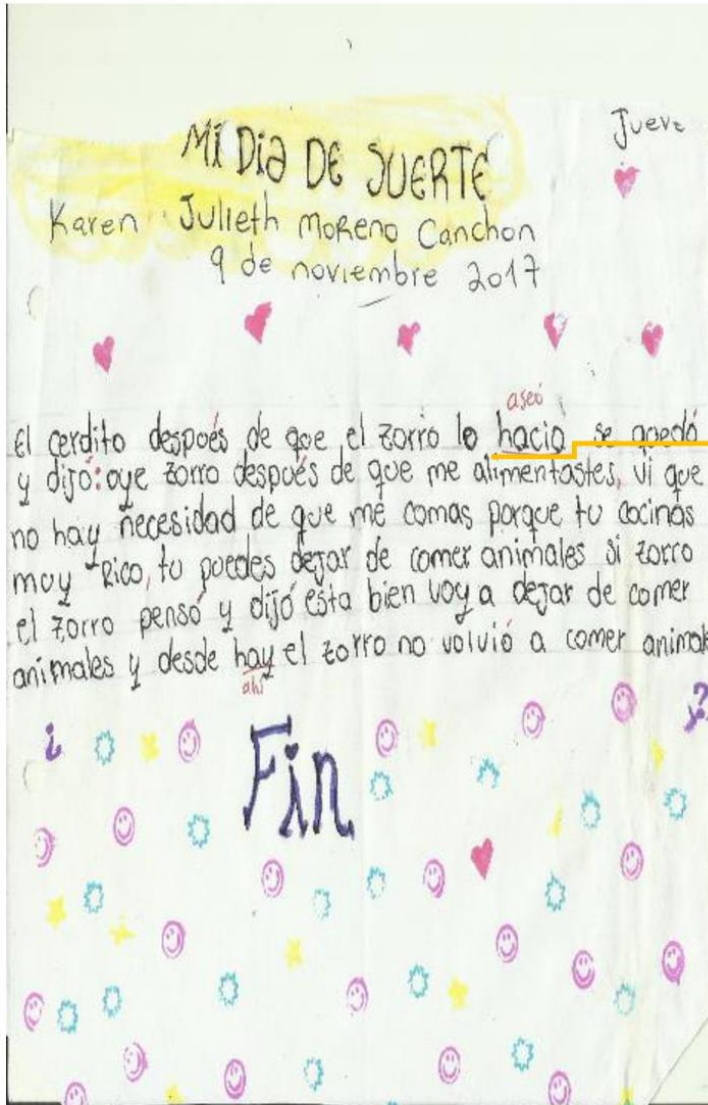 Jueve
MI DIA DE SUERTE
Karen Julieth Moreno Canchon
9 de noviembre 2017
aseó
El cerdito después de que el zorro lo hacio se quedó
y dijó: oye zorro después de que me alimentastes, vi que
no hay necesidad de que me comas porque tu cocinas
muy Rico, tu puedes dejar de comer animales si zorro
el zorro pensó y dijó esta bien voy a dejar de comer
animales y desde hay el zorro no volvió a comer animale
ahí
¿ ?
Fin